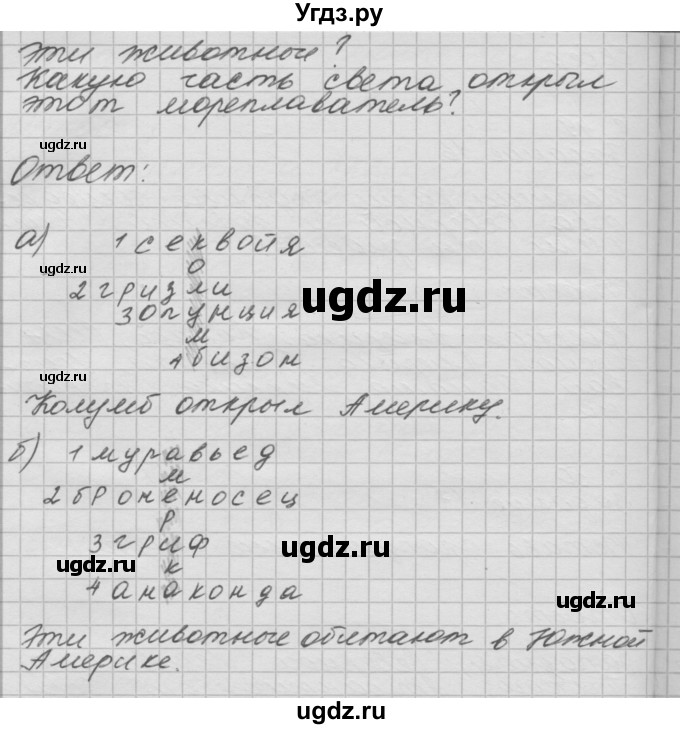 Угдз.ру
эти животные?
Какую часть света открыл
этот мореплаватель?
ugdz.ru
Ответ:
а) 1 секвойя
ugdz.ru
о
2 гризли
ugdz.ru
3 опунция
м
4 бизон
ugdz.ru
Колумб открыл Америку.
б) 1 муравьед
ugdz.ru
м
2 броненосец
р
3 гриф
ugdz.ru
ugdz.ru
к
4 анаконда
ugdz.ru
Эти животные обитают в Южной
Америке.
ugdz.ru
ugdz.ru